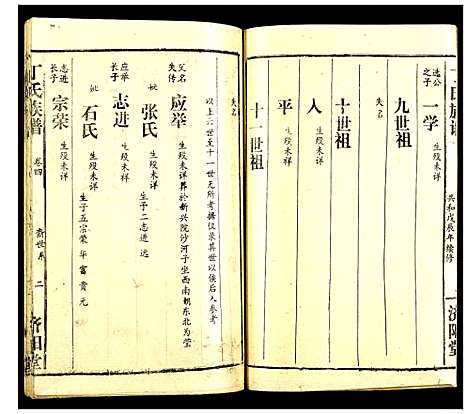 丁氏族谱
共和戊辰年续修
济阳堂
逸公之子
一学
生殁未详
九世祖
失名
十世祖
人
生殁未详
平
生殁未详
十一世祖
以上六世至十一世无所考据仅录其世以俟后人参考
父名失传
应举
生殁未详葬于新兴院沙河子坐西南朝东北为茔
妣
张氏
生殁未详
生子二志进 远
应举长子
志进
生殁未详
妣
石氏
生殁未详
生子五宗荣 华 富 贵 元
志进长子
宗荣
生殁未详
丁氏族谱
卷四
世系
二
济阳堂